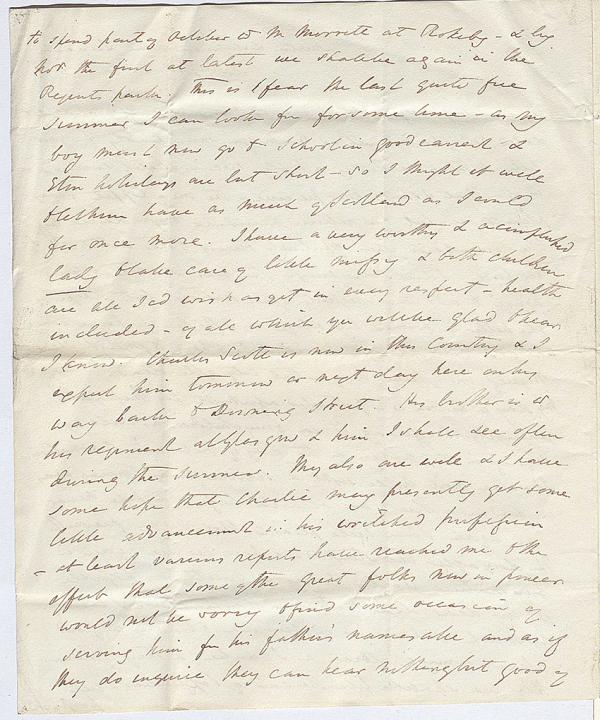 to spend part of October w Mr Morritt at Rokeby - & by
Nov the first at latest we shall be again in the
Regents park. This is I fear the last quite free
summer I can look for for some time - as my
boy must now go to School in good earnest &
Eton holidays are but short - so I thought it well
to let him have as much of Scotland as I could
for once more. I have a very worthy & accomplished
lady to take care of little missy & both children
are all I cd wish as yet in every respect - health
included - of all which you will be glad to hear
I know. Charles Scott is now in this Country & I
expect him tomorrow or next day here on his
way back to Downing Street. His brother is w
his regiment at Glasgow & him I shall see often
during the summer. They also are well & I have
some hope that Charlie may presently get some
little advancement in his wretched profession
- at least various reports have reached me to the
effect that some of the great folks now in power
would not be sorry to find some occasion of
serving him for his father's name sake and as if
they do inquire they can hear nothing but good of